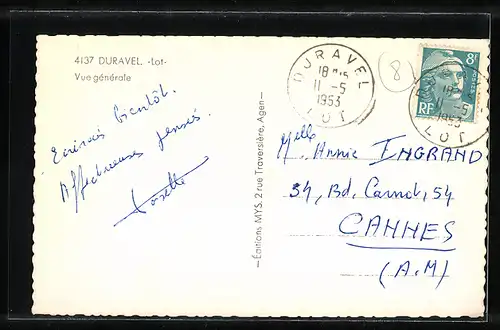 4137 DURAVEL. -Lot-
Vue générale
Ecrirais bientôt.
Affectueuses pensées.
Josette
—Éditions MYS. 2 rue Traversière, Agen—
DURAVEL
18H15
11-5
1953
LOT
8
8F
RF
18
11-5
1953
LOT
Melle Annie INGRAND
34, Bd. Carnot, 54
CANNES
(A.M)